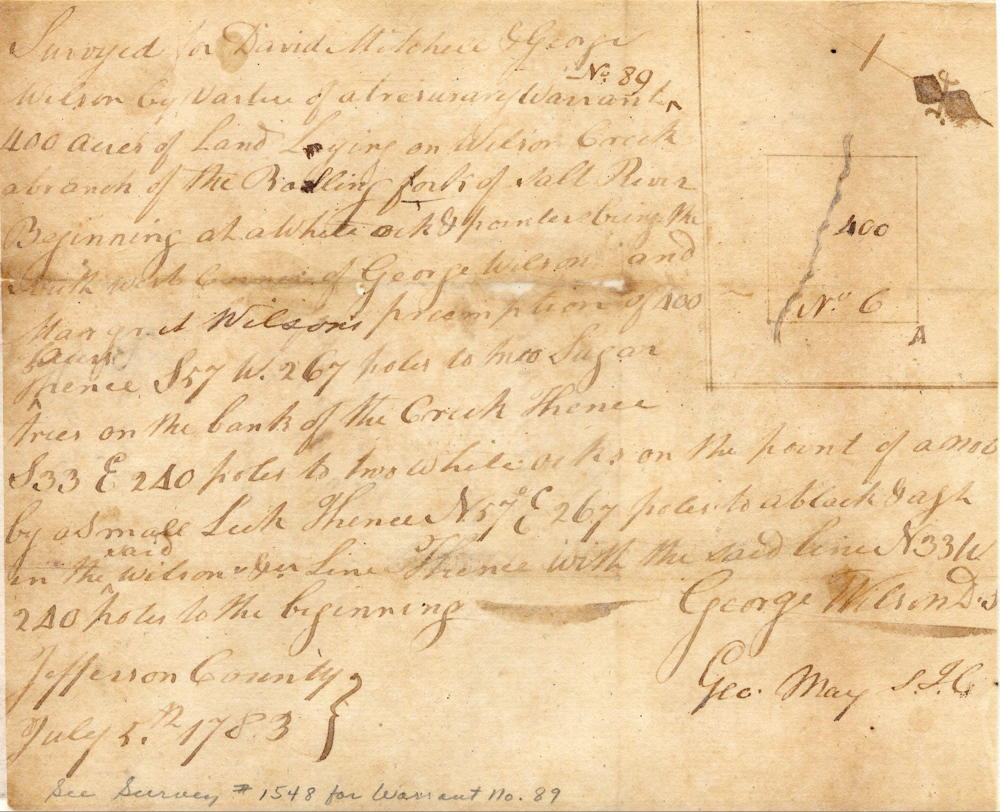 Surveyed for David Mitchell & George
No. 89
Wilson by Vartue of a tresurary Warrant ^
400 acres of Land Lying on Wilson Creek
a branch of the Rolling fork of Salt River
Beginning at a White oak & pointers being the
South west Corner of George Wilson and
Margret Wilsons preemption of 400
acres
Thence S57 W. 267 poles to two Sugar
trees on the bank of the Creek Thence
S33 E 240 poles to two white oaks on the point of a nob
by a Small Lick Thence N57° E 267 poles to a black & ash
said
in the Wilson Line Thence with the said line N33W
240 poles to the beginning
George Wilson D.S
Jefferson County }
July 5.th 1783
Geo. May S.J.C
See Survey # 1548 for Warrant No. 89
400
No 6
A